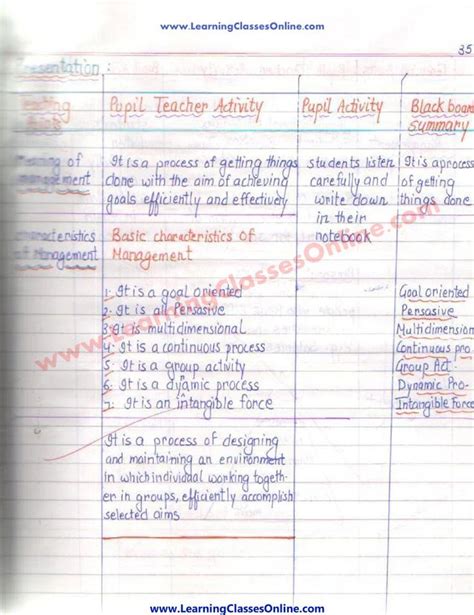 www.LearningClassesOnline.com
35
Presentation :
Teaching Points
Pupil Teacher Activity
Pupil Activity
Black board summary
Meaning of
management
It is a process of getting things
done with the aim of achieving
goals efficiently and effectively
students listen
carefully and
write down
in their
notebook
It is a process
of getting
things done
Characteristics
of Management
Basic characteristics of
Management
1. It is a goal oriented
2. It is all Persasive
3. It is multidimensional
4. It is a continuous process
5. It is a group activity
6. It is a dyamic process
7. It is an intangible force
Goal oriented
Persasive
Multidimension
Continuous pro.
Group Act.
Dynamic Pro-
Intangible Force
It is a process of designing
and maintaining an environment
in which individual working togeth-
er in groups, efficiently accomplish
selected aims
www.LearningClassesOnline.com
www.LearningClassesOnline.com